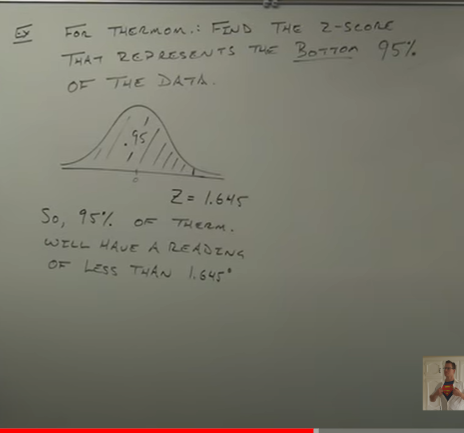 Ex For Thermom.: Find the Z-score
that represents the Bottom 95%
of the data.
.95
0
Z = 1.645
So, 95% of therm.
will have a reading
of less than 1.645°